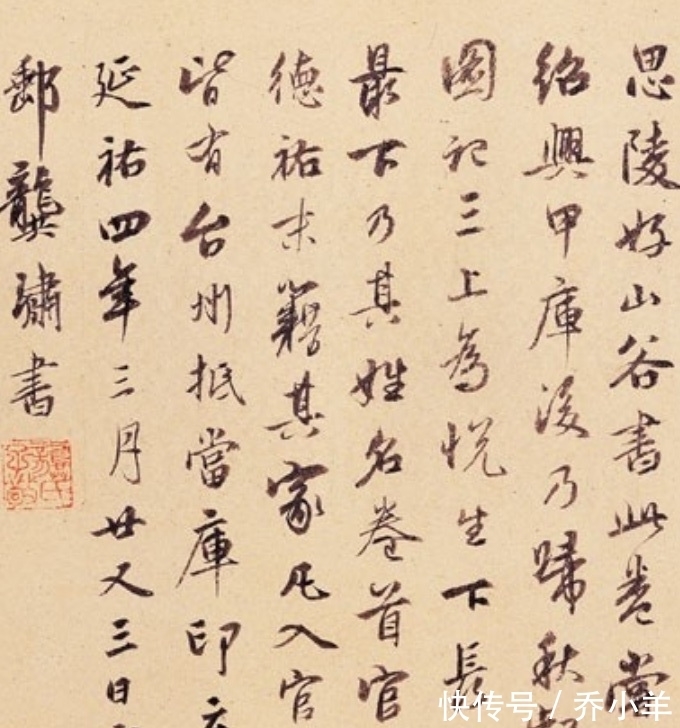 思陵好山谷書此卷當
紹興甲庫後乃歸秋
圖記三上為悅生下長
最下乃其姓名卷首官
德祐末籍其家凡入官
皆有台州抵當庫印
延祐四年三月廿又三日
郵龔璛書
快传号 / 乔小羊